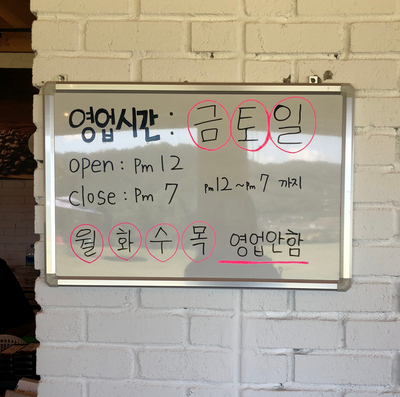 영업시간 : 금 토 일
open : pm 12
close : pm 7
pm 12 ~ pm 7 까지
월 화 수 목 영업안함